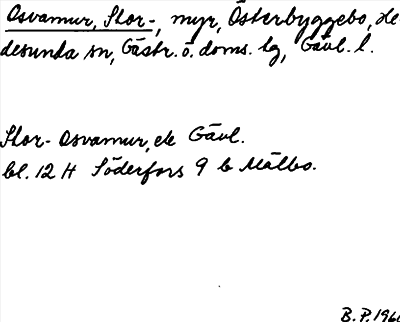 Osvamur, Stor-, myr, Österbyggebo, He
desunda sn, Gästr. ö. doms. lg, Gävl. l.
Stor-Osvamur, ek Gävl.
bl. 12 H Söderfors 9 b Mälbo.
B.P. 1960